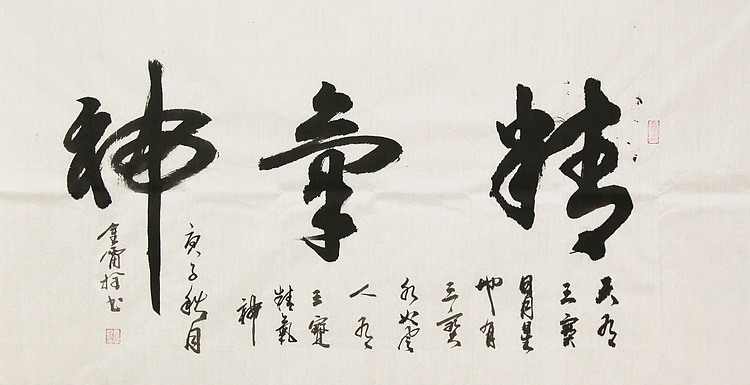 精氣神
天有
三寶
日月星
地有
三寶
水火風
人有
三寶
精氣
神
庚子秋月